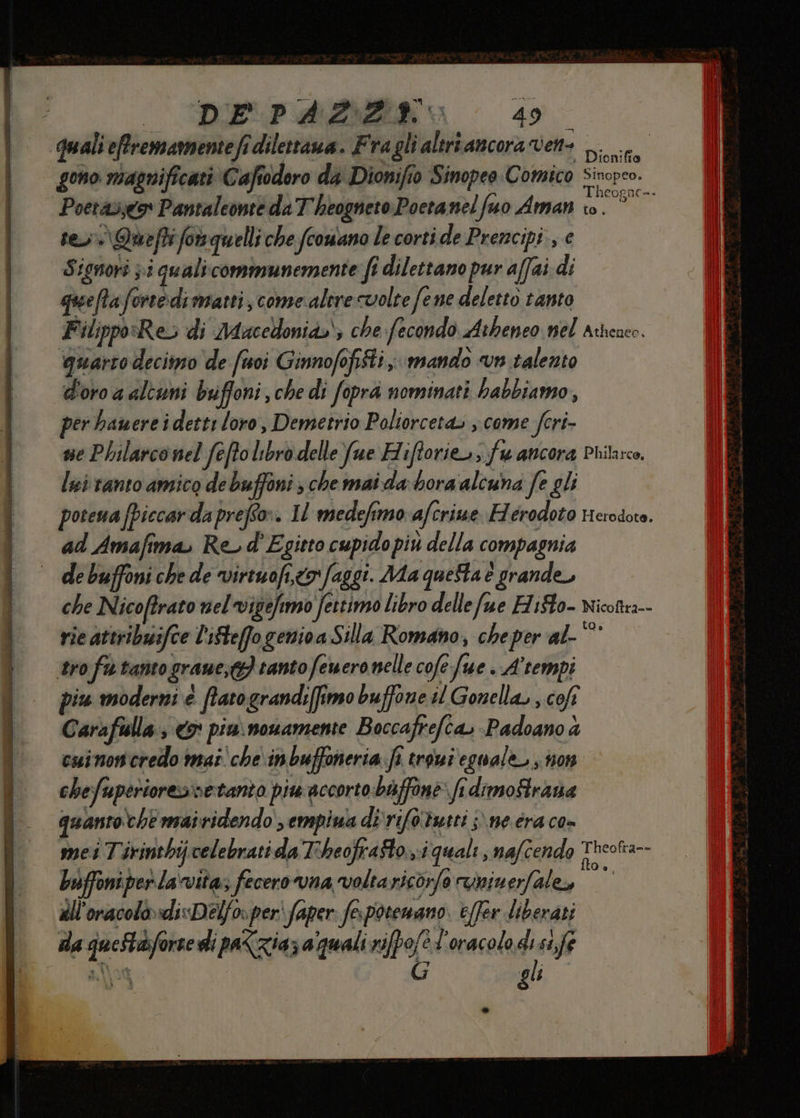 DE PAZZI. 49
quali estremamente si dilettaua. Fra gli altri ancora ven-
gono magnificati Cassiodoro da Dionisio Sinopeo Comico
Dionisio
Sinopeo.
Poeta, & Pantaleonte da Theogneto Poeta nel suo Aman
Theogne--
to.
te. Questi son quelli che scouano le corti de Prencipi, e
Signori; i quali communemente si dilettano pur assai di
questa sorte di matti, come altre volte se ne delettò tanto
Filippo Re di Macedonia, che secondo Atheneo nel
Atheneo.
quarto decimo de suoi Ginnosofisti, mandò vn talento
d'oro a alcuni buffoni, che di sopra nominati habbiamo,
per hauere i detti loro, Demetrio Poliorceta, come scri-
ue Philarco nel sesto libro delle sue Historie, fu ancora
Philarco.
lui tanto amico de buffoni, che mai da hora alcuna se gli
poteua spiccar da presso. Il medesimo ascriue Herodoto
Herodoto.
ad Amasima Re d'Egitto cupido più della compagnia
de buffoni che de virtuosi, & saggi. Ma questa è grande
che Nicostrato nel vigesimo settimo libro delle sue Histo-
Nicostra--
to.
rie attribuisce l'istesso genio a Silla Romano, che per al-
tro fu tanto graue, & tanto seuero nelle cose sue. A' tempi
piu moderni è stato grandissimo buffone il Gonella, così
Carafulla, & piu nouamente Boccafresca Padoano à
cui non credo mai che in buffoneria si troui eguale, non
che superiore, e tanto piu accorto buffone si dimostraua
quanto che mai ridendo, empiua di riso tutti; ne era co-
mei Tirinthij celebrati da Theofrasto, i quali, nascendo
Theofra--
sto.
buffoni per la vita, fecero vna volta ricorso vniuersale
all'oracolo di Delfo, per saper se poteuano esser liberati
da questa sorte di pazzia; a' quali rispose l'oracolo di sì, se
G gli